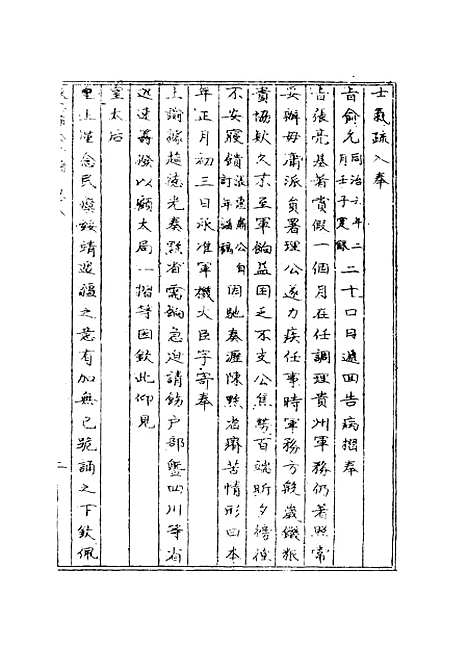 士氣疏入奉
旨俞允同治六年二月壬子實錄二十口日遞回告病摺奉
旨張亮基著賞假一個月在任調理貴州軍務仍著照常
妥辦毋庸派員署理公遂力疾任事時軍務方殷歲儉賑
賫協欵久京至軍餉益困乏不支公焦勞百端昕夕
不安寢饋張惠肅公自訂年譜因馳奏瀝陳黔省窮苦情形曰本
年正月初三日承准軍機大臣字寄奉
上諭據趙德光奏黔省需餉急迫請飭戶部暨四川等省
迅速籌撥以顧大局一摺等因欽此仰見
皇太后
皇上廑念民瘼綏靖邊疆之意有加無已跪誦之下欽佩